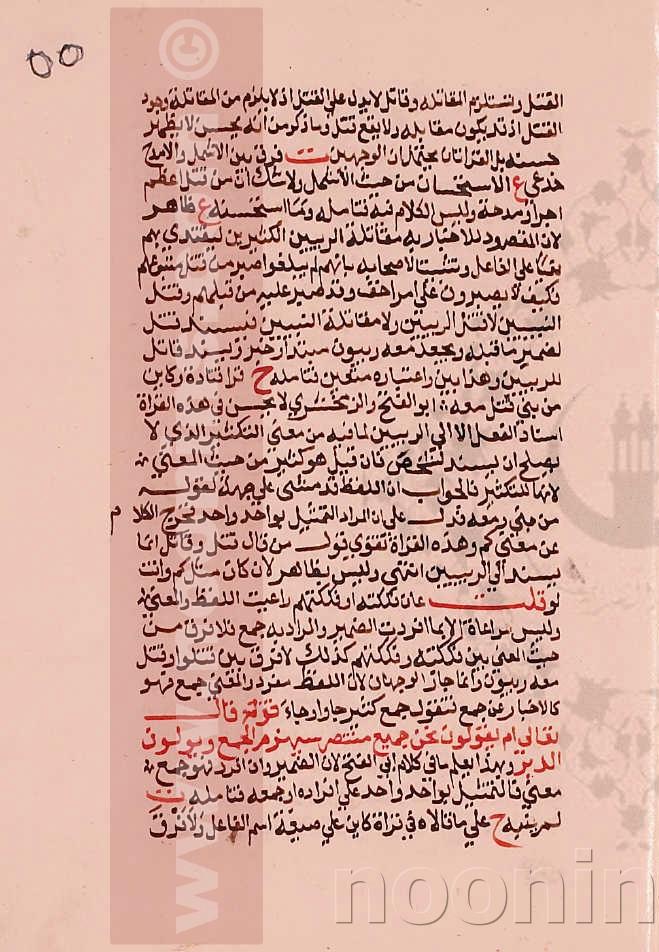 القتل وتستلزم المقاتله وقاتل لا يدل على القتل اذ لا يلزم من المقاتلة وجود
القتل اذ قد يكون مقاتله ولا يقع قتل وما ذكر من انه يحسن لا يظهر
حسنه بل القراتان يحتملان الوجهين ت فرق بين الاشمل والامدح
فدعى ع الاستحسان من حيث الاشمل ولا شك ان من قتل اعظم
اجرا ومدحة وليس الكلام فيه فتامله وما استحسنه ع ظاهر
لان المقصود للاخبار به مقاتلة الربيين الكثيرين ليقتدي بهم
على الفاعل وتثبيتا لاصحابه بانهم لم يبلغوا صبر من قتل
فكيف لا يصبرون على امر اخف وقد صبر عليه من قبلهم وقتل
النبيين لا قتل الربيين ولا مقاتلة النبيين فيسند قتل
لضمير ما قبله ويجعل معه ربيون مبتدا وخبر ويسند قاتل
للربيين وهذا بين واعتباره متعين فتامله ح قرا قتادة وكاين
من نبي قتل معه ابو الفتح والزمخشري لا يحسن في هذه القراة
اسناد الفعل الا الى الربيين لما فيه من معنى التكثير الذي لا
يصلح ان يسند لشخص فان قيل هو كثير من حيث المعنى
لانها للتكثير فالجواب ان اللفظ قد مشى على جهة لقوله
من نبي ومعه فدل على ان المراد التمثيل بواحد واحد فخرج الكلام
عن معنى كم وهذه القراة تقوي قول من قال قتل وقاتل انما
يسند الى الربيين انتهى وليس بظاهر لان كان مثل كم وانت
لو قلت عان فككته او فككتهم راعيت اللفظ والمعنى
وليس مراعاة الا لما افردت الضمير والمراد به جمع فلا فرق من
حيث المعنى بين فككته وفككتهم كذلك لا فرق بين قتلوا وقتل
معه ربيون وانما جاز الوجهان لان اللفظ مفرد والمعنى جمع فهو
كالاخبار عن جمع فتقول جمع كثير جاوا وجاء قوله قال
تعالى ام يقولون نحن جميع منتصر سيهزم الجمع ويولون
الدبر وبهذا يعلم ما في كلام ابي الفتح لان الضمير وان افرد فهو جمع
معنى فالتمثيل بواحد واحد على افراده او جمعه فتامله ت
لم ينبه ح على ما قالاه في قراة كاين على صيغة اسم الفاعل ولا فرق